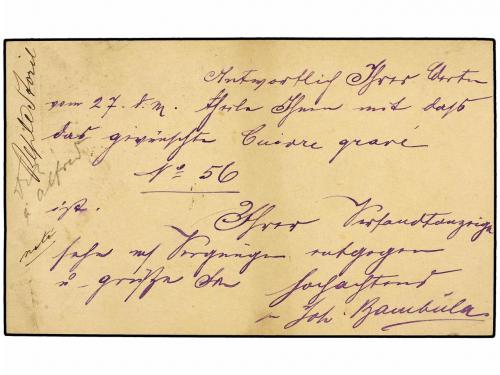 Antwortlich Ihrer Werten
vom 27. d. M. theile Ihnen mit daß
das gewünschte Cuivre gravé
No 56
ist.
Ihrer Versandtanzeige
sehe mit Vergnügen entgegen
u. grüße Sie hochachtend
Joh. Bambula
Alfred
note